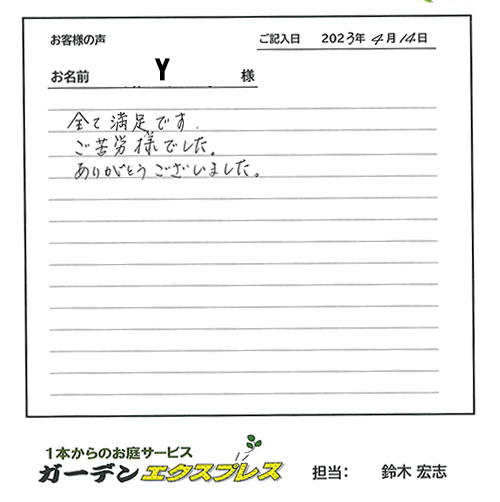 お客様の声 ご記入日 2023年 4月14日
お名前 Y 様
全て満足です.
ご苦労様でした。
ありがとうございました。
1本からのお庭サービス
ガーデンエクスプレス 担当: 鈴木 宏志